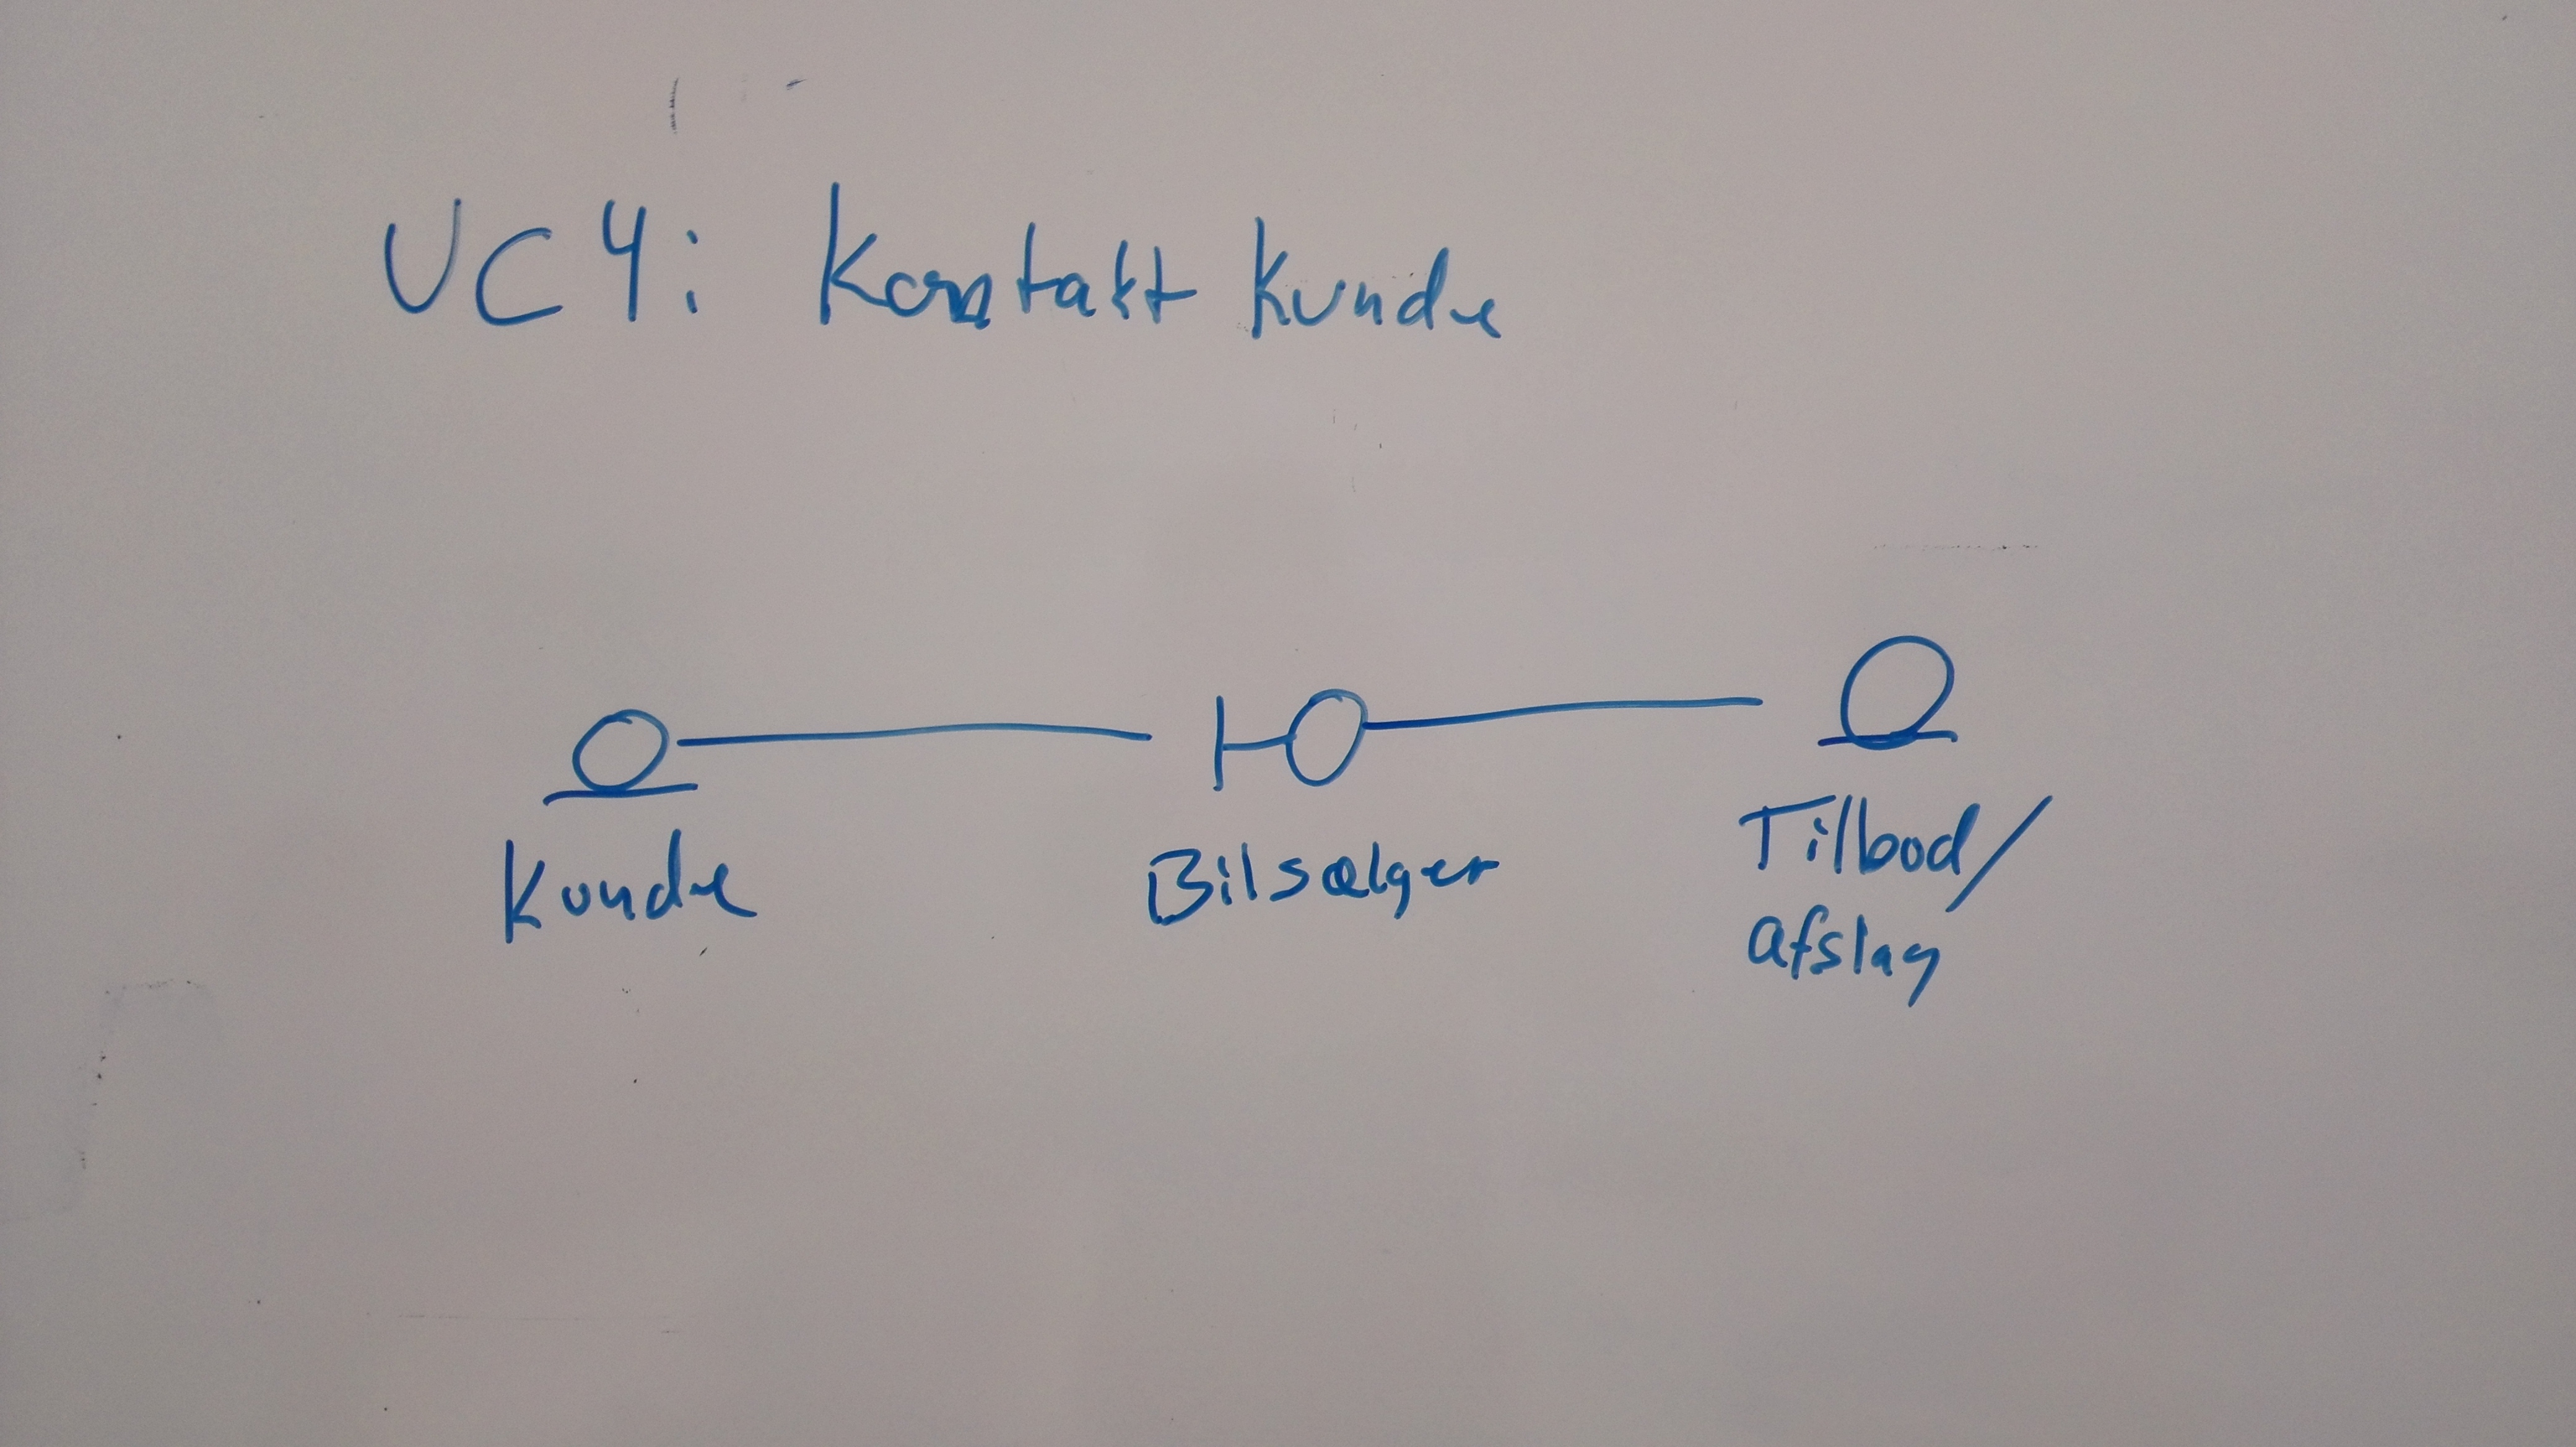 UC4: Kontakt Kunde
Kunde
Bilsælger
Tilbud/
afslag